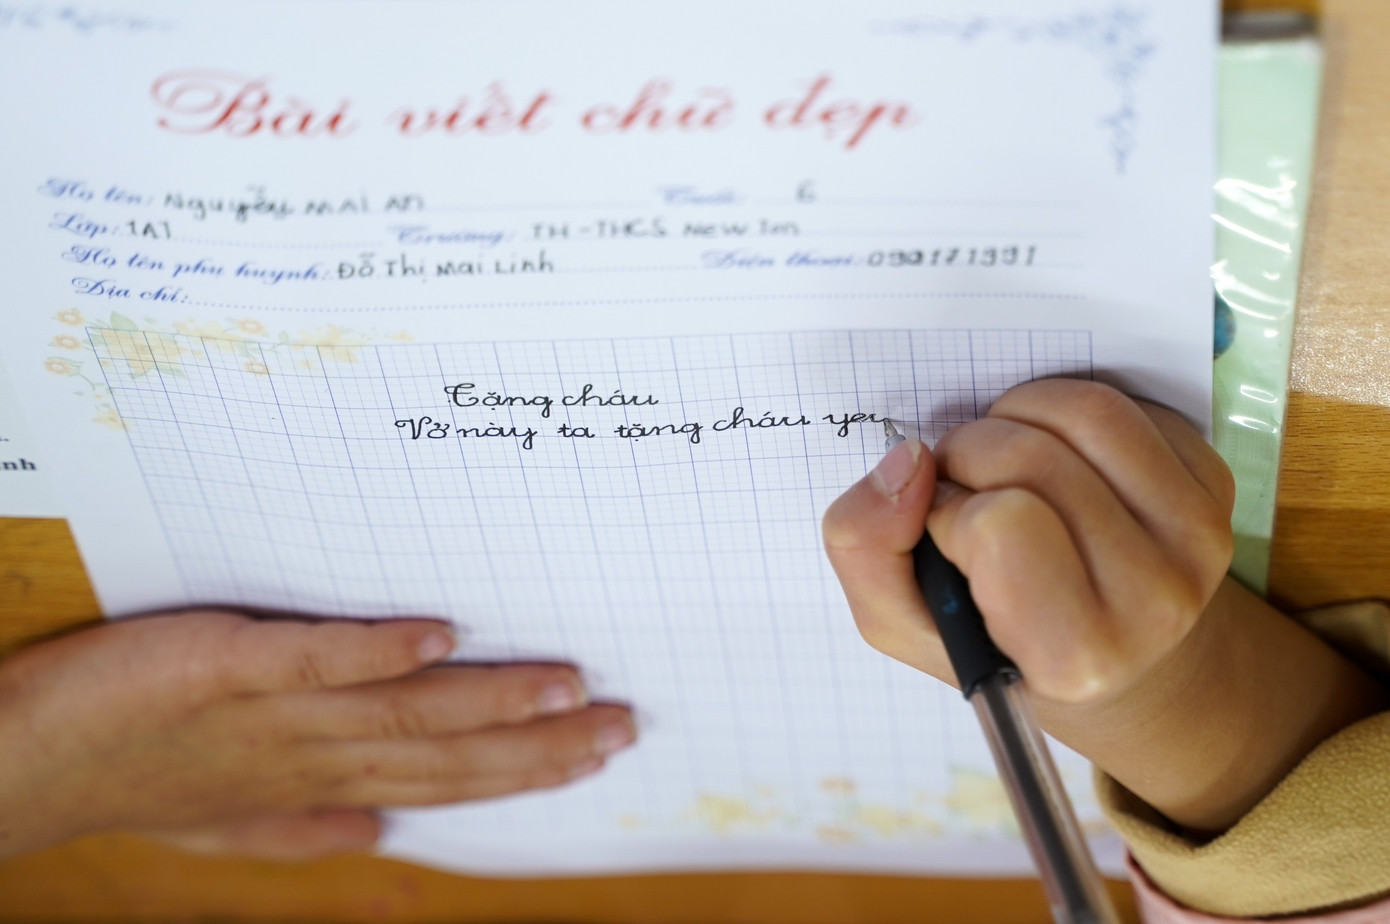 Bài viết chữ đẹp
Họ tên: Nguyễn Mai An Tuổi: 6
Lớp: 1A1 Trường: TH-THCS New Ton
Họ tên phụ huynh: Đỗ Thị Mai Linh Điện thoại:
Địa chỉ:
Tặng cháu
Vở này ta tặng cháu yêu
nh